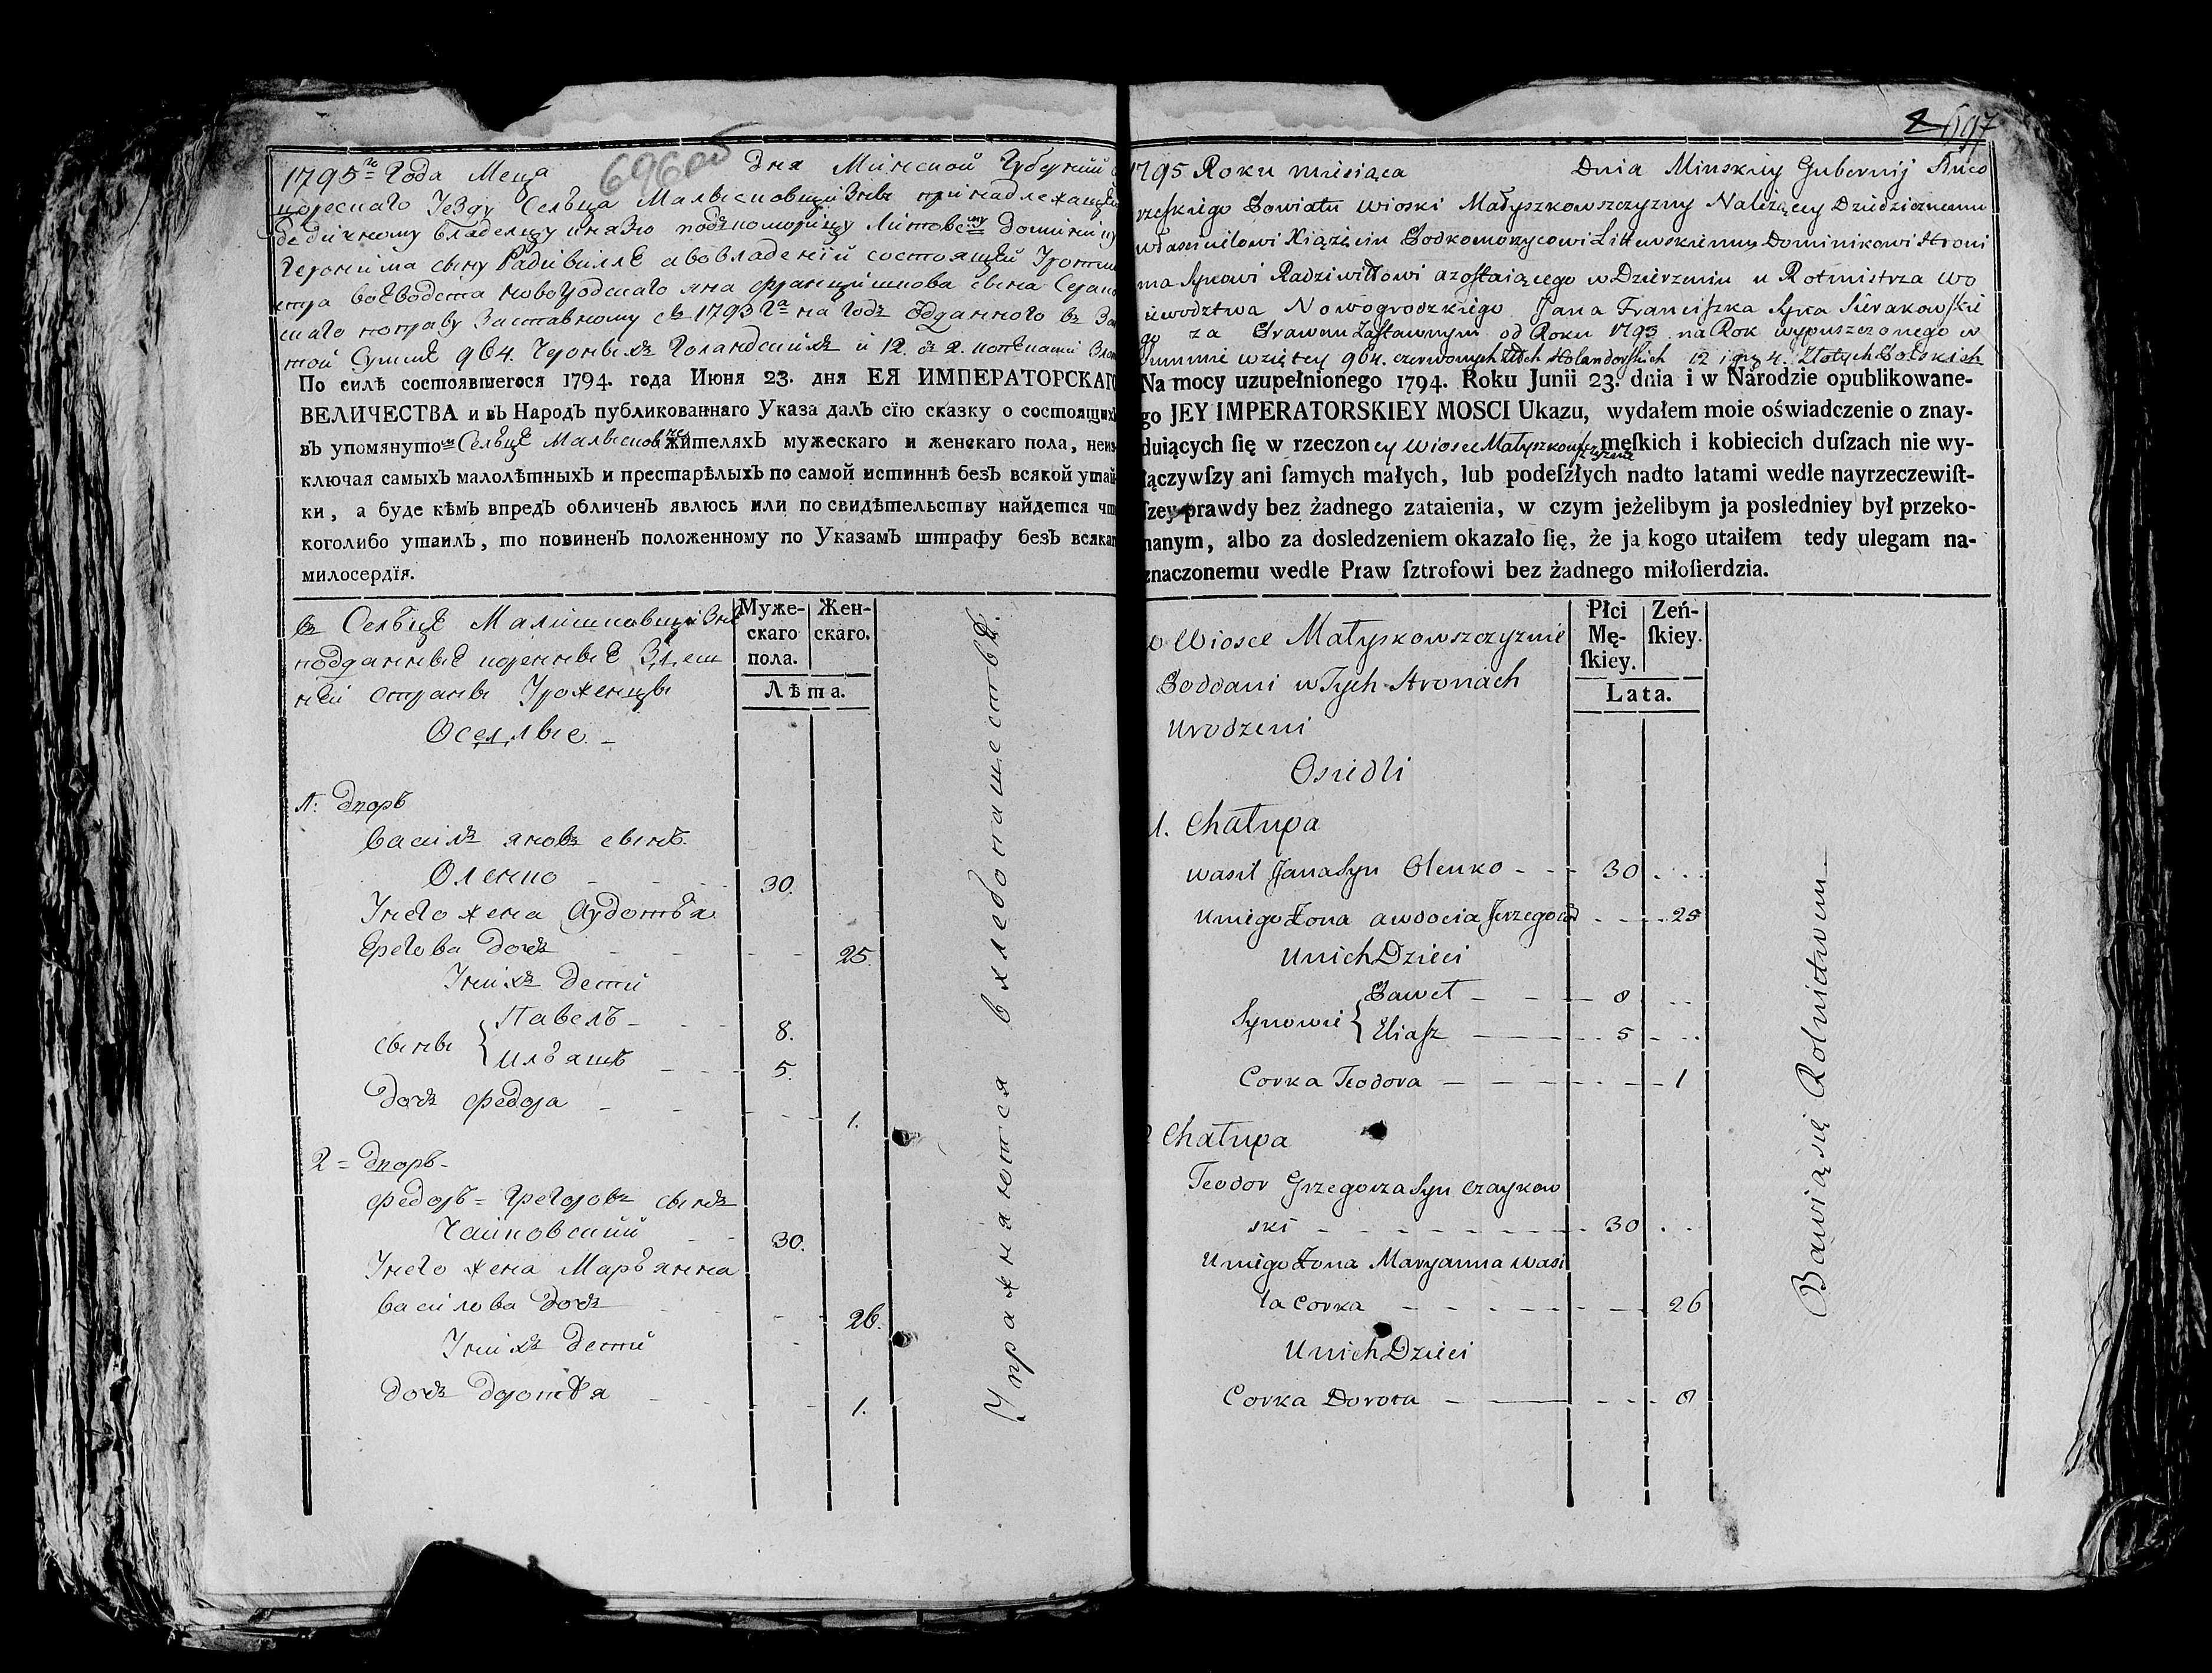 696 об
1795го Года Меца дня Минской Губернии
корескаго Уезду Сельца Малысковщизны принадлежащей
дедичному владельцу князю подкоморицу Литовскому Доминику
Геронима сыну Радивилле а во владений состоящей Уротми
стра воеводства новогодскаго яна францишкова сына Серако
скаго по праву заставному съ 1793 го на годъ отданного въ
той Сумме 964. Черонныхъ Голандскихъ и 12.
По силѣ состоявшегося 1794. года Июня 23. дня ЕЯ ИМПЕРАТОРСКАГО
ВЕЛИЧЕСТВА и въ Народъ публикованнаго Указа далъ сїю сказку о состоящихъ
въ упомянутомъ Сельце жителяхъ мужескаго и женскаго пола, неиз
ключая самыхъ малолѣтныхъ и престарѣлыхъ по самой истиннѣ безъ всякой утай-
ки, а буде кѣмъ впредь обличенъ явлюсь или по свидѣтельству найдется что
коголибо утаилъ, то повиненъ положенному по Указамъ штрафу безъ всякаго
милосердїя.
въ Сельце Малишковщизне
подданные коренные Здеш
ней страны Уроженцы
Оселлые. –
Муже-
скаго
пола.
Жен-
скаго.
Лѣта.
1: дворъ
василъ яновъ сынъ
Оленко 30.
Унего жена Аудотья
Ерегова дочь 25.
Унихъ дети
сыны { Павелъ 8.
Ильяшъ 5.
дочь федора 1.
2 = дворъ -
федоръ = Грегоровъ сынъ
Чайковский 30.
Унего жена Марьянна
василова дочь 26.
Унихъ дети
дочь доротея 1.
Упражняются в хлебопашестве.
697
1795 Roku miesiąca Dnia Minskiey Gubernij Nieo
rzeskiego Powiatu Wioski Małyszkowszczyzny Należącey Dziedzicznemu
właścicielowi Xiążęciu Podkomorzycowi Littewskiemu Dominikowi Hroni
ma Synowi Radziwiłłowi a zostaiącego w Dzierżeniu u Rotmistrza Wo
iewodztwa Nowogrodzkiego Jana Franciszka Syna Sierakowskie
go za Prawem Zastawnym od Roku 1793 na Rok wypuszczonego w
summie wziętey 964. czerwonych złłch Holanderskich 12 i gr 4. Złotych Polskich
Na mocy uzupełnionego 1794. Roku Junii 23. dnia i w Narodzie opublikowane-
go JEY IMPERATORSKIEY MOSCI Ukazu, wydałem moie oświadczenie o znay-
duiących ſię w rzeczoney Wiosce Małyszkowszczyznie męſkich i kobiecich duſzach nie wy-
łączywſzy ani ſamych małych, lub podeſzłych nadto latami wedle nayrzeczewiſt-
ſzey prawdy bez żadnego zataienia, w czym jeżelibym ja posledniey był przeko-
nanym, albo za dosledzeniem okazało ſię, że ja kogo utaiłem tedy ulegam na-
znaczonemu wedle Praw ſztrofowi bez żadnego miłoſierdzia.
w Wiosce Małyskowszczyznie
Poddani w Tych Stronach
Urodzeni
Osiedli
Płci
Mę-
ſkiey.
Zeń-
ſkiey.
Lata.
1. Chałupa
Wasil Jana Syn Olenko - - - 30
U niego Żona Awdocia Jerzego cor 25
U nich Dzieci
Synowie { Paweł - - 8
Eliasz 5
Corka Teodora 1
2 Chałupa
Teodor Grzegorza Syn Czaykow
ski 30
U niego Żona Maryanna Wasi
la Corka 26
U nich Dzieci
Corka Dorota 8
Bawią się Rolnictwem